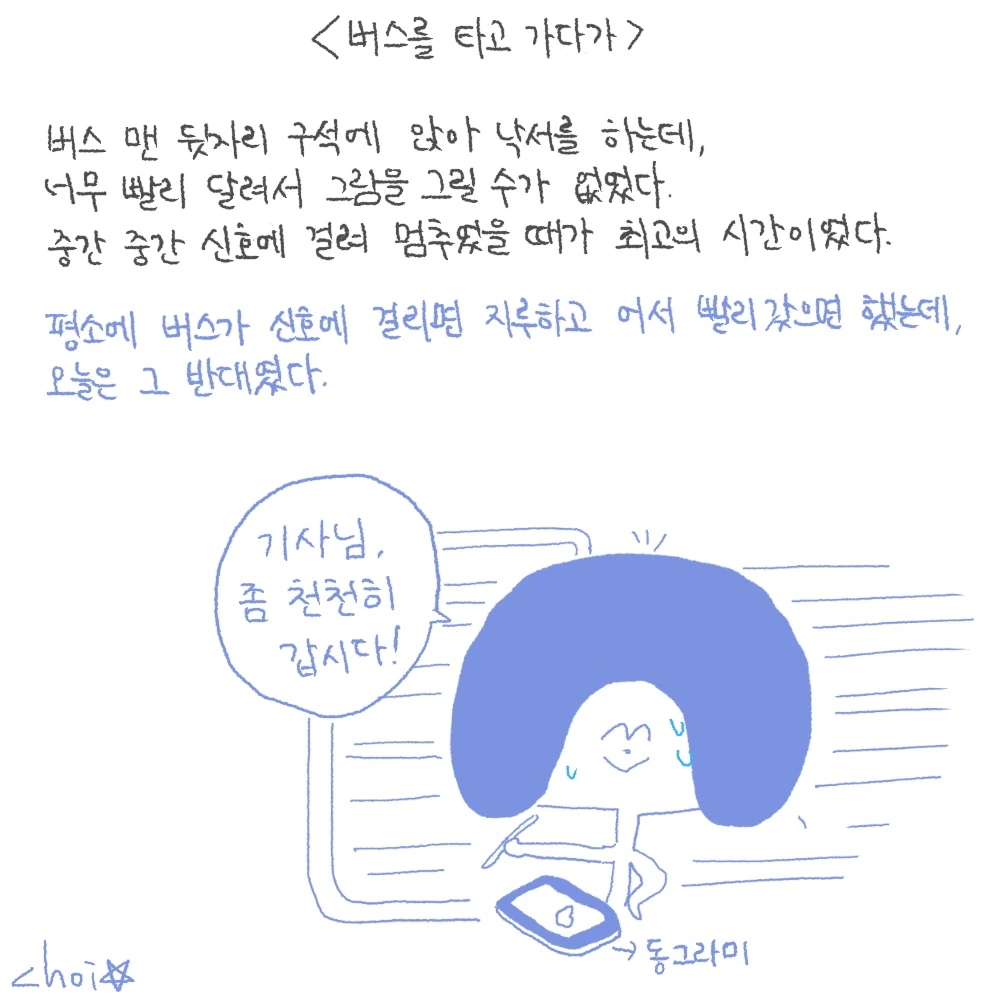 <버스를 타고 가다가>
버스 맨 뒷자리 구석에 앉아 낙서를 하는데,
너무 빨리 달려서 그림을 그릴 수가 없었다.
중간 중간 신호에 걸려 멈추었을 때가 최고의 시간이었다.
평소에 버스가 신호에 걸리면 지루하고 어서 빨리 갔으면 했는데,
오늘은 그 반대였다.
기사님,
좀 천천히
갑시다!
→동그라미
choi☆